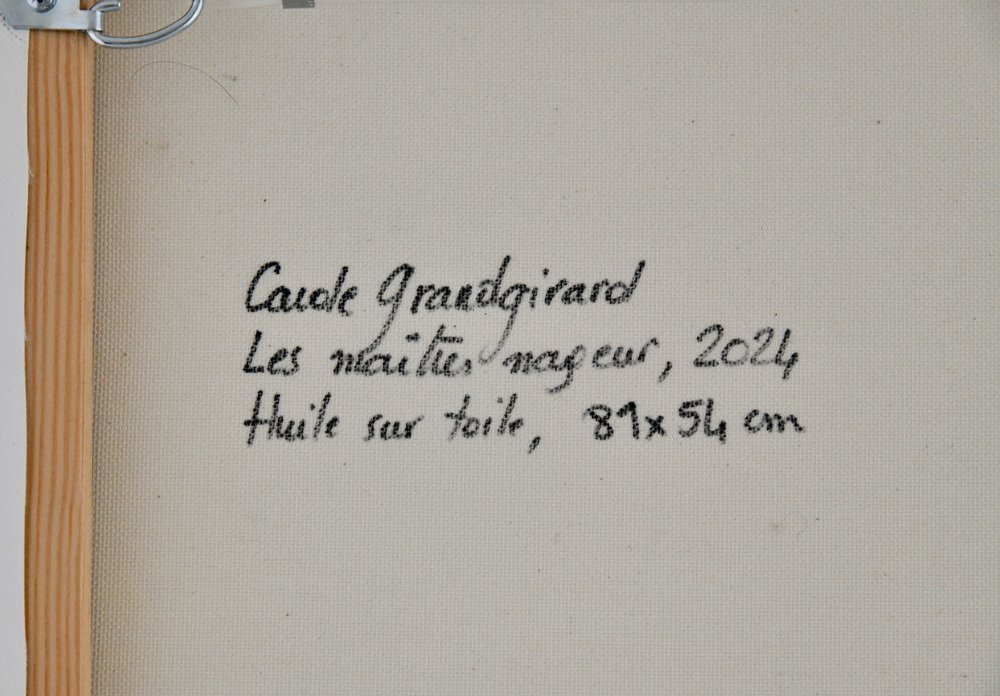 Carole Grandgirard
Les maîtres nageur, 2024
Huile sur toile, 81x54 cm